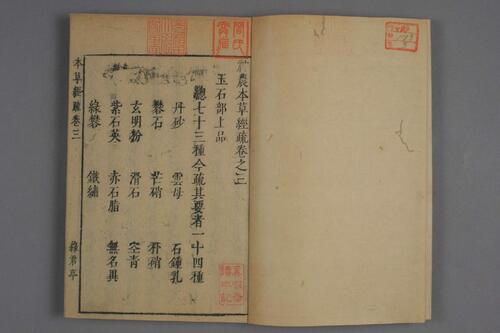 農本草經疏卷之三
玉石部上品
總七十三種今疏其要者一十四種
丹砂 雲母 石鍾乳
礬石 芒硝 朴硝
玄明粉 滑石 空青
紫石英 赤石脂 無名異
綠礬 鐵繡
本草經疏卷三 綠君亭